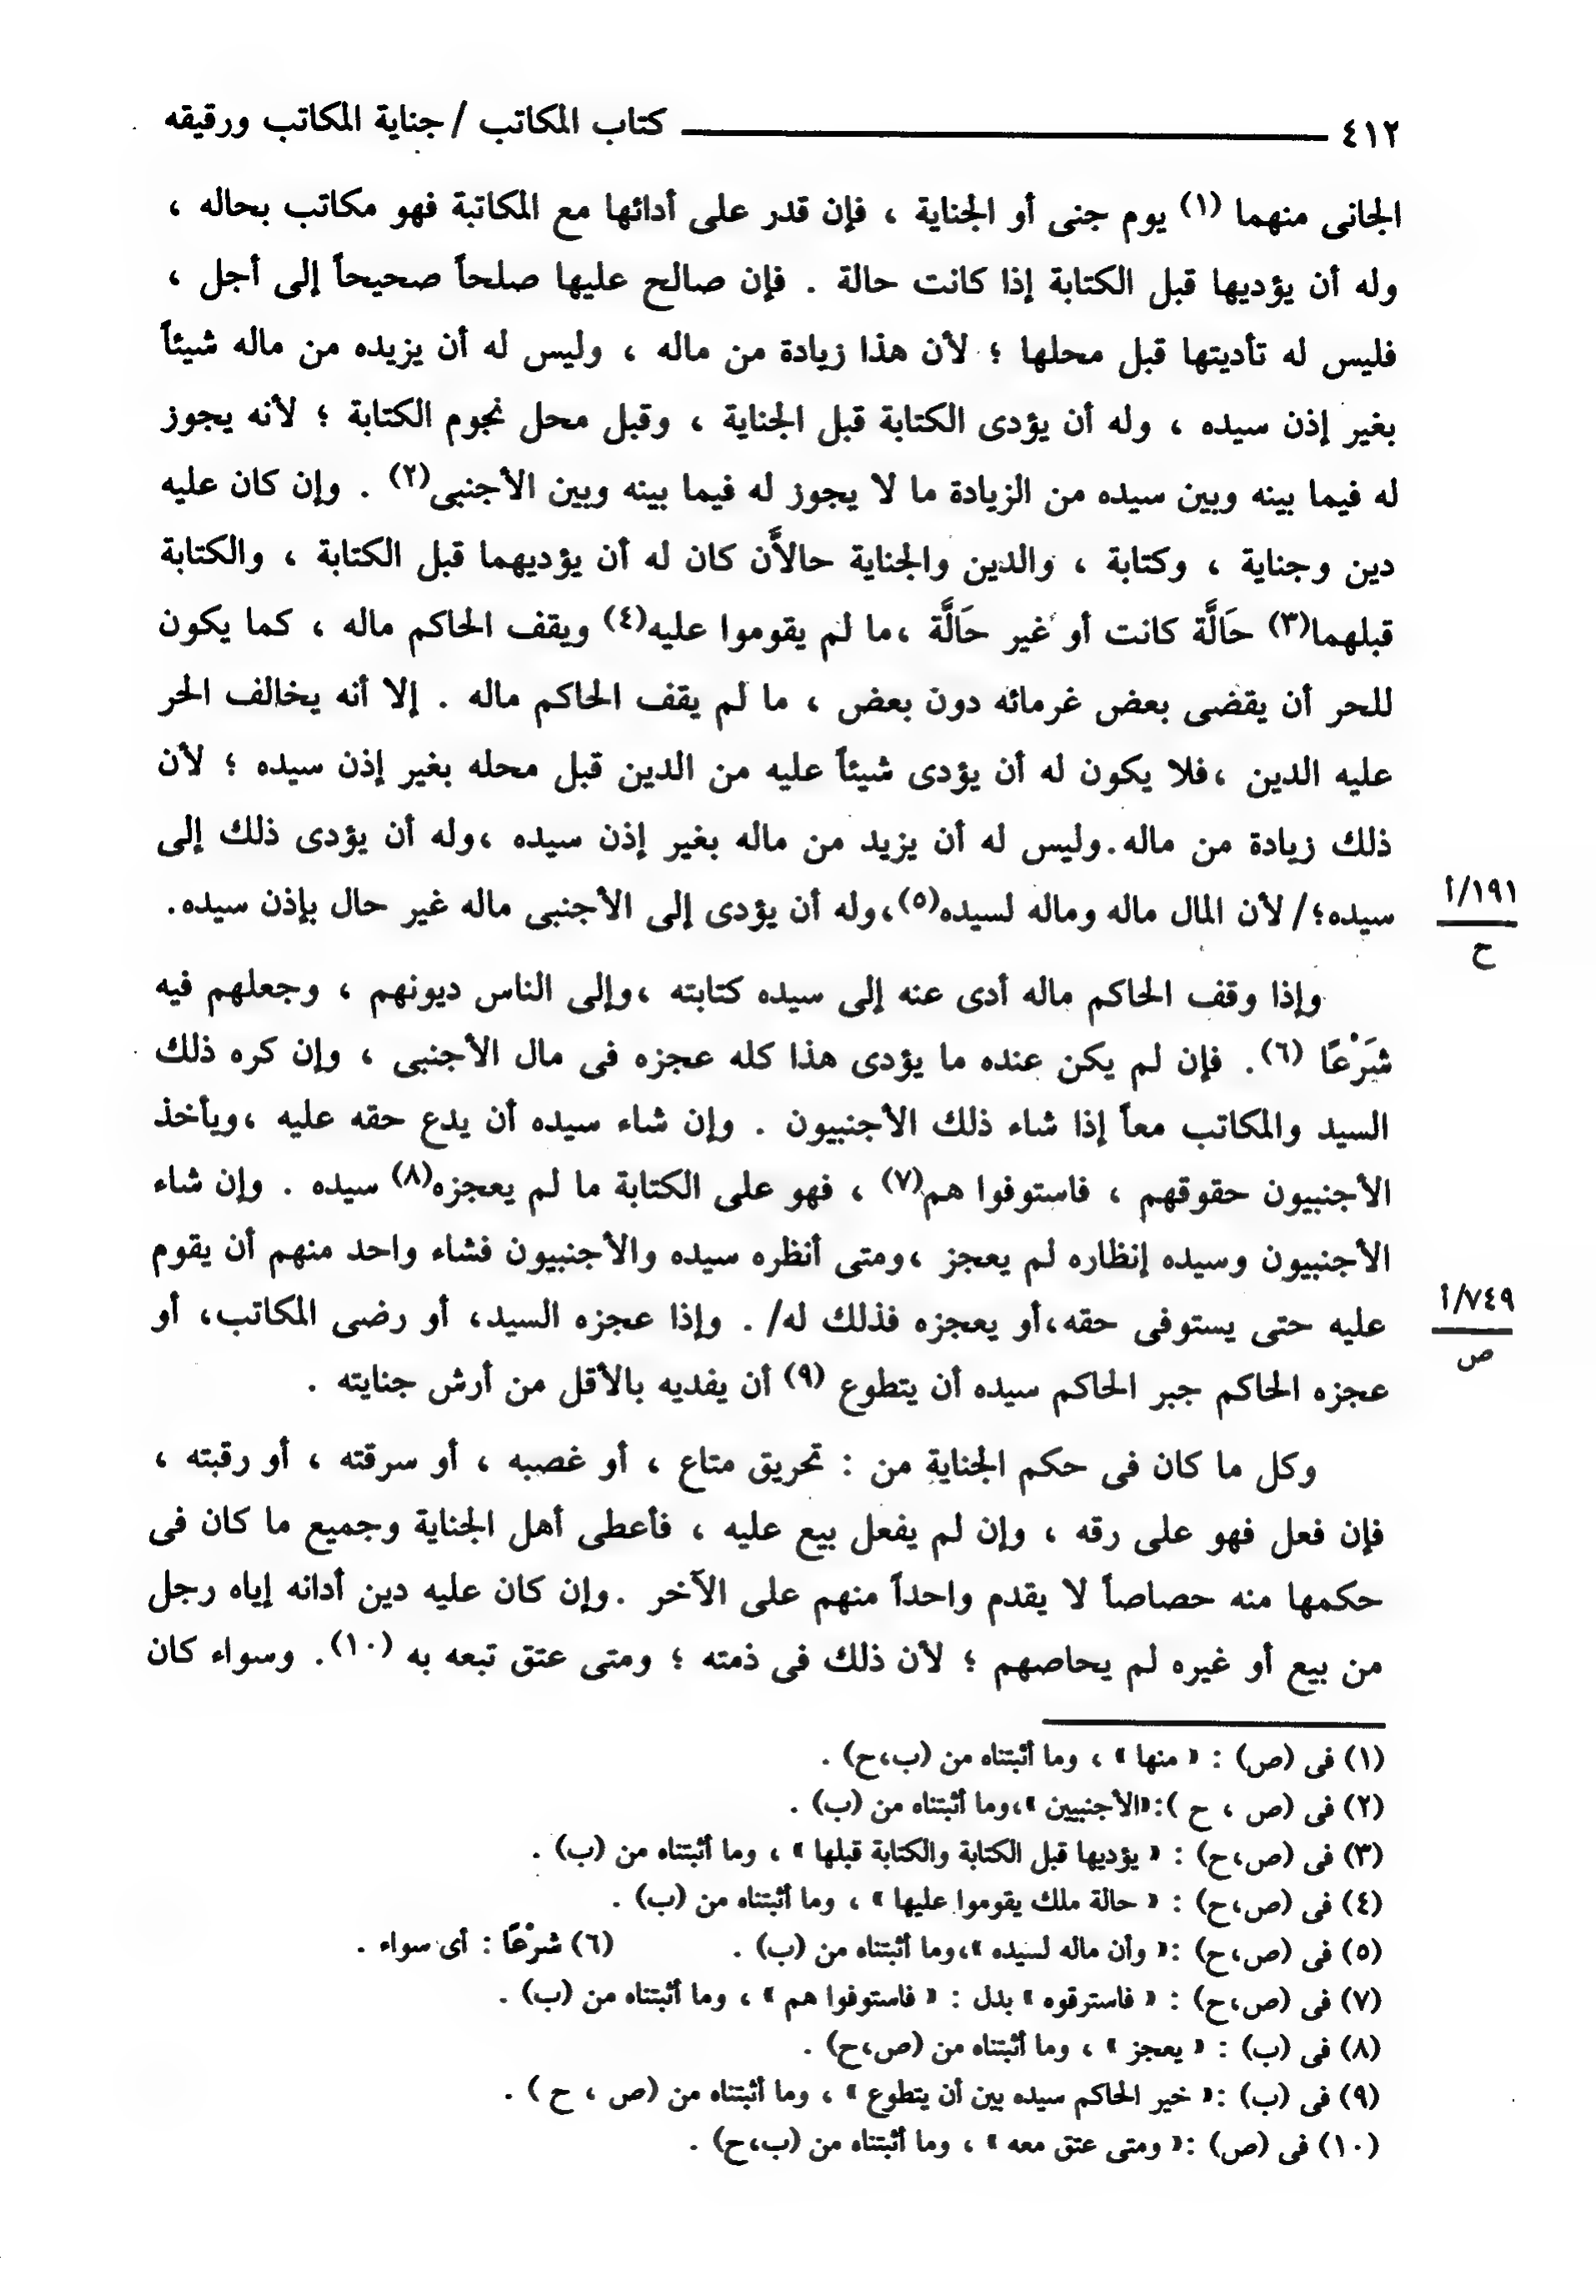 ٤١٢ ــــــــــــــــــــــــــــــــــــ كتاب المكاتب / جناية المكاتب ورقيقه
الجانى منهما (١) يوم جنى أو الجناية ، فإن قدر على أدائها مع المكاتبة فهو مكاتب بحاله ،
وله أن يؤديها قبل الكتابة إذا كانت حالة . فإن صالح عليها صلحاً صحيحاً إلى أجل ،
فليس له تأديتها قبل محلها ؛ لأن هذا زيادة من ماله ، وليس له أن يزيده من ماله شيئاً
بغير إذن سيده ، وله أن يؤدى الكتابة قبل الجناية ، وقبل محل نجوم الكتابة ؛ لأنه يجوز
له فيما بينه وبين سيده من الزيادة ما لا يجوز له فيما بينه وبين الأجنبى(٢) . وإن كان عليه
دين وجناية ، وكتابة ، والدين والجناية حالاَّن كان له أن يؤديهما قبل الكتابة ، والكتابة
قبلهما(٣) حَالَّة كانت أو غير حَالَّة ،ما لم يقوموا عليه(٤) ويقف الحاكم ماله ، كما يكون
للحر أن يقضى بعض غرمائه دون بعض ، ما لم يقف الحاكم ماله . إلا أنه يخالف الحر
عليه الدين ،فلا يكون له أن يؤدى شيئاً عليه من الدين قبل محله بغير إذن سيده ؛ لأن
ذلك زيادة من ماله.وليس له أن يزيد من ماله بغير إذن سيده ،وله أن يؤدى ذلك إلى
سيده؛/ لأن المال ماله وماله لسيده(٥)،وله أن يؤدى إلى الأجنبى ماله غير حال بإذن سيده.
١٩١/أ
ح
وإذا وقف الحاكم ماله أدى عنه إلى سيده كتابته ،وإلى الناس ديونهم ، وجعلهم فيه
شَرْعًا (٦). فإن لم يكن عنده ما يؤدى هذا كله عجزه فى مال الأجنبى ، وإن كره ذلك
السيد والمكاتب معاً إذا شاء ذلك الأجنبيون . وإن شاء سيده أن يدع حقه عليه ،ويأخذ
الأجنبيون حقوقهم ، فاستوفوا هم(٧) ، فهو على الكتابة ما لم يعجزه(٨) سيده . وإن شاء
الأجنبيون وسيده إنظاره لم يعجز ،ومتى أنظره سيده والأجنبيون فشاء واحد منهم أن يقوم
عليه حتى يستوفى حقه،أو يعجزه فذلك له/ . وإذا عجزه السيد، أو رضى المكاتب، أو
٧٤٩/أ
ص
عجزه الحاكم جبر الحاكم سيده أن يتطوع (٩) أن يفديه بالأقل من أرش جنايته .
وكل ما كان فى حكم الجناية من : تحريق متاع ، أو غصبه ، أو سرقته ، أو رقبته ،
فإن فعل فهو على رقه ، وإن لم يفعل بيع عليه ، فأعطى أهل الجناية وجميع ما كان فى
حكمها منه حصاصاً لا يقدم واحداً منهم على الآخر .وإن كان عليه دين أدانه إياه رجل
من بيع أو غيره لم يحاصهم ؛ لأن ذلك فى ذمته ؛ ومتى عتق تبعه به (١٠). وسواء كان
(١) فى (ص) : « منها » ، وما أثبتناه من (ب،ح) .
(٢) فى (ص ، ح ):«الأجنبيين »،وما أثبتناه من (ب) .
(٣) فى (ص،ح) : « يؤديها قبل الكتابة والكتابة قبلها » ، وما أثبتناه من (ب) .
(٤) فى (ص،ح) : « حالة ملك يقوموا عليها » ، وما أثبتناه من (ب) .
(٥) فى (ص،ح) :« وأن ماله لسيده »،وما أثبتناه من (ب) . (٦) شَرْعًا : أى سواء .
(٧) فى (ص،ح) : « فاسترقوه » بدل : « فاستوفوا هم » ، وما أثبتناه من (ب) .
(٨) فى (ب) : « يعجز » ، وما أثبتناه من (ص،ح) .
(٩) فى (ب) :« خير الحاكم سيده بين أن يتطوع » ، وما أثبتناه من (ص ، ح ) .
(١٠) فى (ص) :« ومتى عتق معه » ، وما أثبتناه من (ب،ح) .